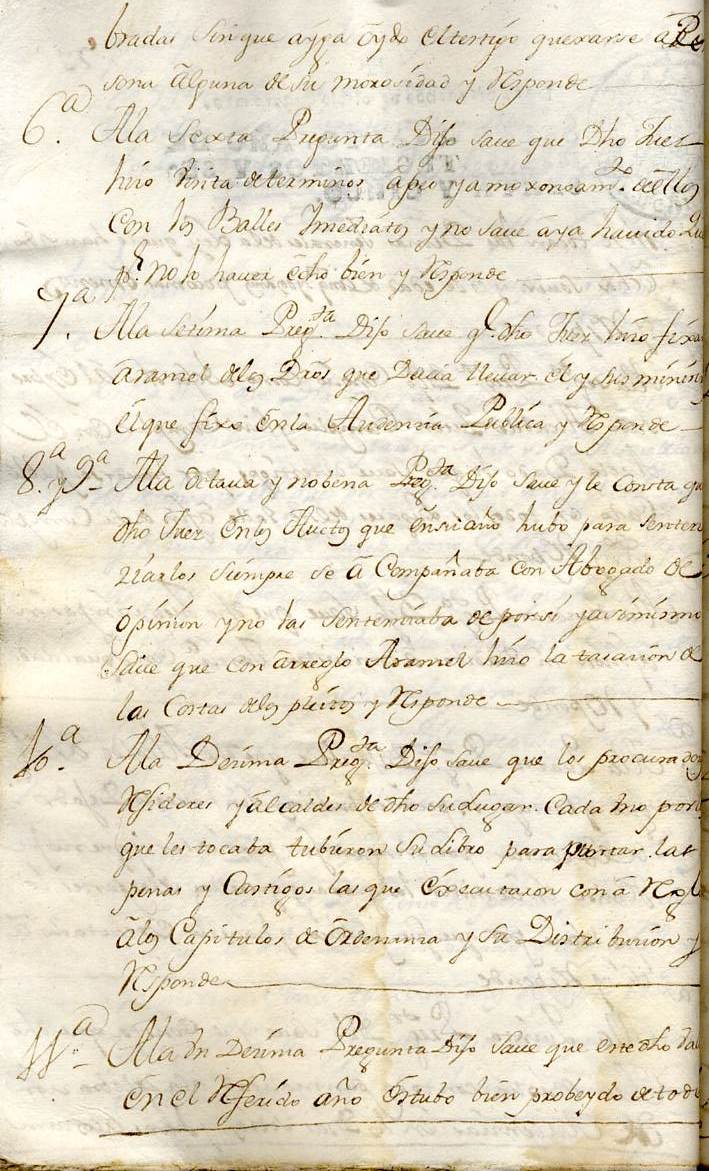 bradas sin que ayga oydo el testigo quexarse a Per
sona alguna de su morosidad y Responde
6.ª Ala Sexta Pregunta Dijo save que Dho Juez
hizo Vissita de terminos apeo y amoxonoam.to de ellos
con los Balles Ymediatos y no save aya havido
p.r no lo haver echo bien y Responde
7.ª Ala Setima Preg.ta Dijo save q.e dho Juez hizo fixar
aranzel delos Dros que Devia llevar el y sus minis
el que fixo en la Audencia Publica y Responde
8.ª y 9.ª Ala octava y nobena Preg.ta Dijo save y le consta que
dho Juez en los Auctos que en su año hubo para senten
ziarlos siempre se aCompañaba con Abogado de
opinion y no las sentenziaba de por si y asimismo
save que con arreglo Aranzel hizo la tasazion de
las Costas delos pleitos y Responde
10.ª Ala Dezima Preg.ta Dijo save que los procuradores
Rejidores y alcaldes de dho su Lugar Cada Uno por
que les tocaba tubieron su Libro para puntar las
penas y Castigos las que executaron con aRegl
alos Capitulos de ordenanza y su Distribuzion y
Responde
11.ª Ala un Dezima Pregunta Dijo save que este dho
en el Referido año estubo bien probeydo de tod